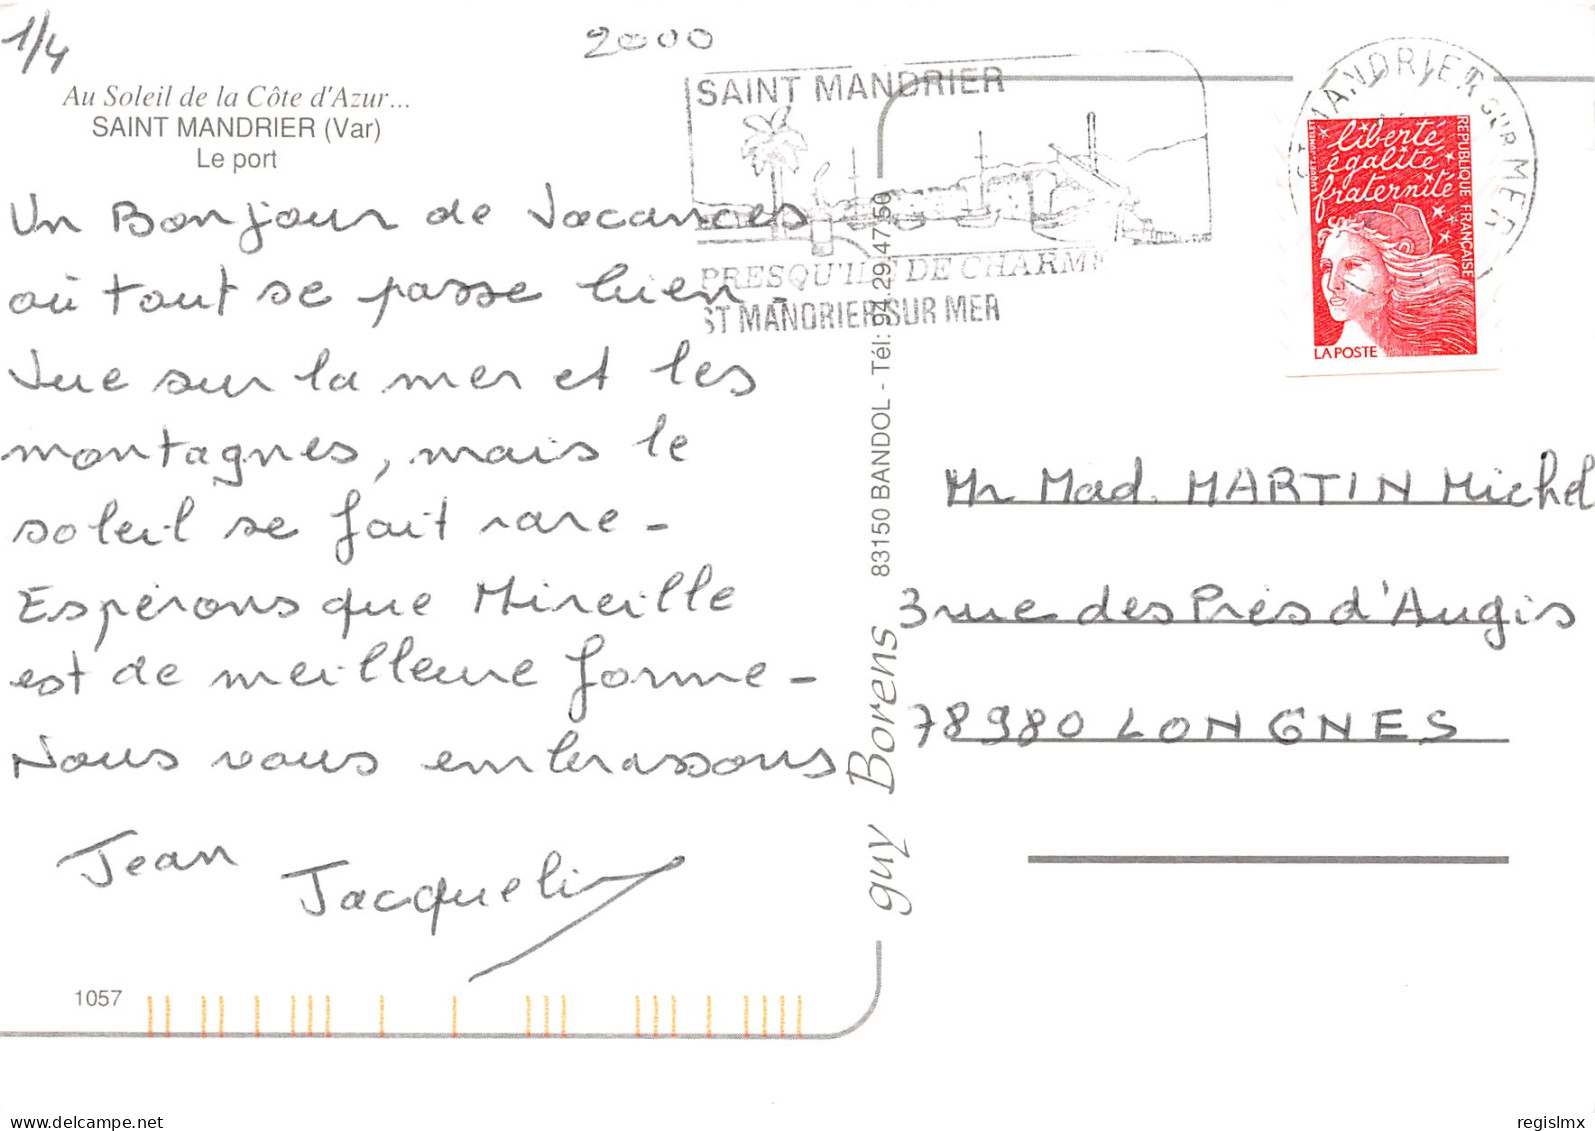 1/4
2000
Au Soleil de la Côte d'Azur...
SAINT MANDRIER (Var)
Le port
Un Bonjour de Vacances
où tout se passe bien -
Vue sur la mer et les
montagnes, mais le
soleil se fait rare -
Espérons que Mireille
est de meilleure forme -
Nous vous embrassons
Jean
Jacqueline
1057
SAINT MANDRIER
PRESQU'ILE DE CHARME
ST MANDRIER SUR MER
guy Borens 83150 BANDOL - Tél: 94.29.47.50
MANDRIER SUR MER
liberté
égalité
fraternité
RÉPUBLIQUE FRANÇAISE
LUQUET-JUMELET
LA POSTE
Mr Mad. MARTIN Michel
3 rue des Prés d'Augis
78980 LONGNES
www.delcampe.net
regislmx